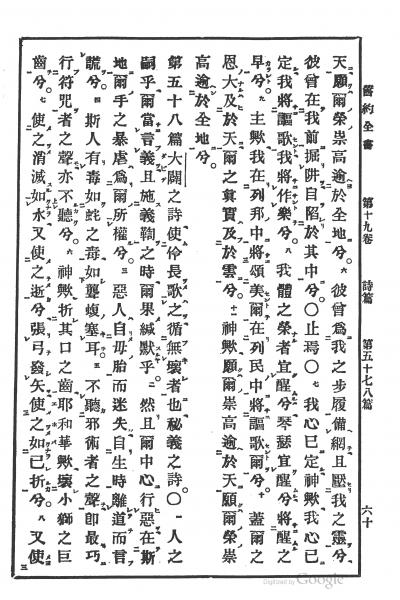 舊約全書　第十九卷　詩篇　第五十七八篇　六十
天願爾榮崇高逾於全地兮。六彼曾爲我之步履備網且壓我之靈兮
彼曾在我前掘阱自陷於其中兮。〇止焉〇七我心已定神歟我心已
定我將謳歌我將作樂兮。八我體之榮者宜醒兮琴瑟宜醒兮將醒之
早兮。九主歟我在列邦中將頌美爾在列民中將謳歌爾兮。十蓋爾之
恩大及於天爾之真實及於雲兮。十一神歟願爾崇高逾於天願爾榮崇
高逾於全地兮。
第五十八篇大闢之詩使伶長歌之循無壞者也秘義之詩〇一人之
嗣乎爾當言義且施義鞫之時爾果緘默乎。二然且爾中心行惡在斯
地爾手之暴虐爲爾所權兮。三惡人自母胎而迷失自生時離道而言
謊兮。四斯人有毒如蛇之毒如聾蝮塞耳。五不聽邪術者之聲卽最巧
行符咒者之聲亦不聽兮。六神歟折其口之齒耶和華歟壞小獅之巨
齒兮。七使之消滅如水又使之逝兮張弓發矢使之如已折兮。八又使
三
Digitized by Google